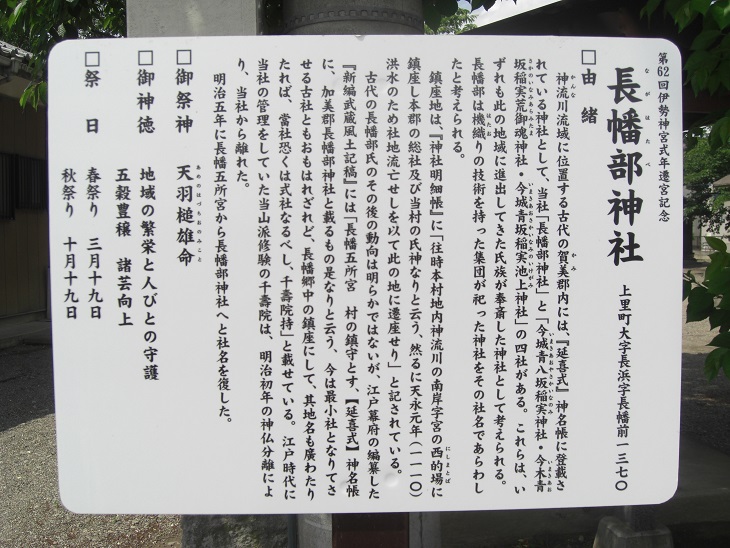 第62回伊勢神宮式年遷宮記念
長幡部神社
ながはたべ
上里町大字長浜字長幡前一三七〇
□由緒
神流川流域に位置する古代の賀美郡内には、『延喜式』神名帳に登載さ
れている神社として、当社「長幡部神社」と「今城青八坂稲実神社・今木青
坂稲実荒御魂神社・今城青坂稲実池上神社」の四社がある。これらは、い
ずれも此の地域に進出してきた氏族が奉斎した神社として考えられる。
長幡部は機織りの技術を持った集団が祀った神社をその社名であらわし
たと考えられる。
鎮座地は、『神社明細帳』に「往時本村地内神流川の南岸字宮の西的場に
鎮座し本郡の総社及び当村の氏神なりと云う、然るに天永元年(一一一〇)
洪水のため社地流亡せしを以て此の地に遷座せり」と記されている。
古代の長幡部氏のその後の動向は明らかではないが、江戸幕府の編纂した
『新編武蔵風土記稿』には「長幡五所宮 村の鎮守とす、【延喜式】神名帳
に、加美郡長幡部神社と載るもの是なりと云う、今は最小社となりてさ
せる古社ともおもはれざれど、長幡郷中の鎮座にして、其地名も廣わたり
たれば、當社恐くは式社なるべし、千壽院持」と載せている。江戸時代に
当社の管理をしていた当山派修験の千壽院は、明治初年の神仏分離によ
り、当社から離れた。
明治五年に長幡五所宮から長幡部神社へと社名を復した。
□御祭神 天羽槌雄命
あめのはづちおのみこと
□御神徳 地域の繁栄と人びとの守護
五穀豊穣 諸芸向上
□祭日 春祭り 三月十九日
秋祭り 十月十九日